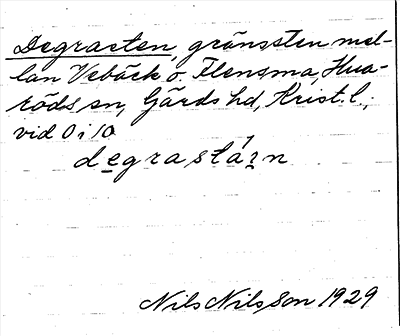 Degrasten, gränssten mel-
lan Vebäck o. Flensma, Hua-
röds sn, Gärds hd, Krist. l.;
vid O i 10
degrastá2n
Nils Nilsson 1929